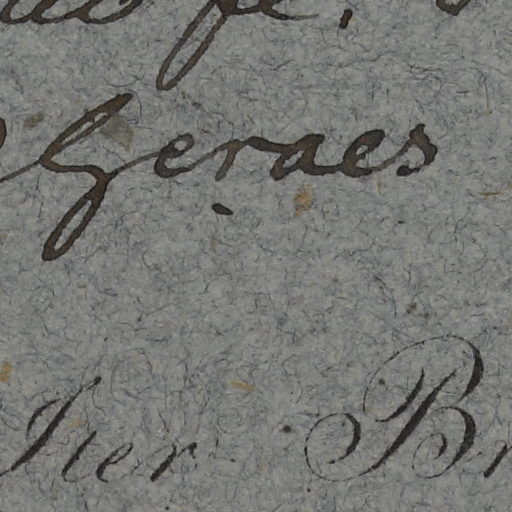 Geraes
Iter Br